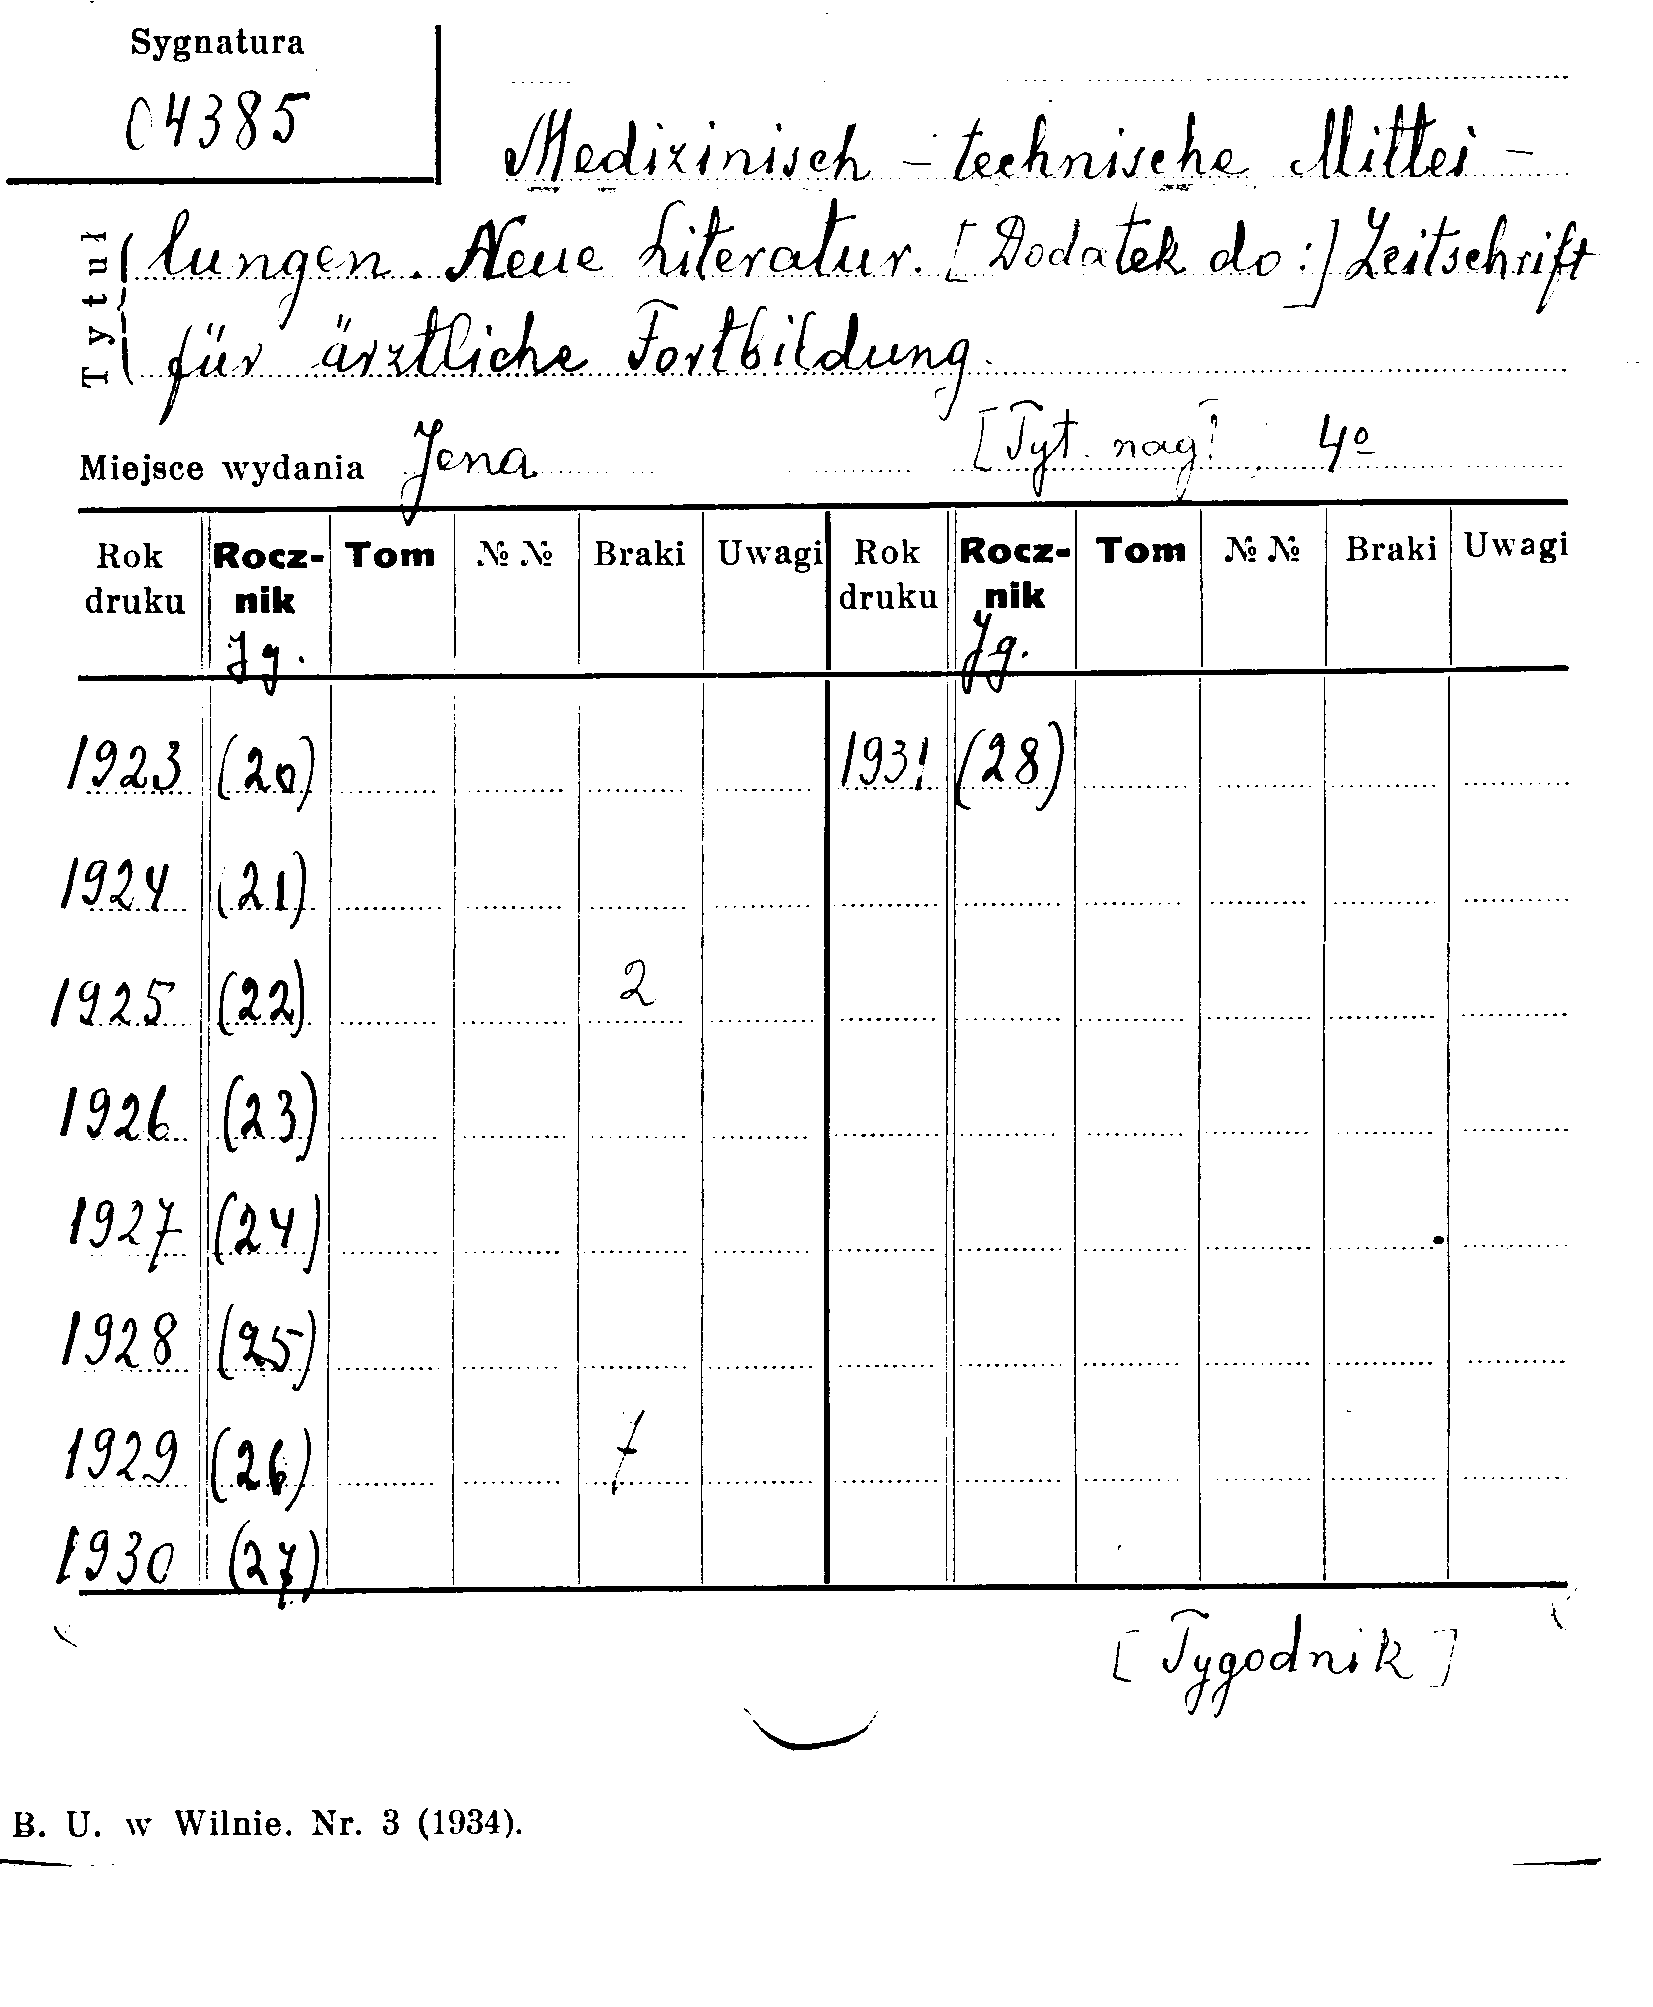 Sygnatura
04385
Medizinisch - technische Mittei -
Tytuł
lungen. Neue Literatur. [Dodatek do:] Zeitschrift
für ärztliche Fortbildung.
[Tyt. nag] 4º
Miejsce wydania Jena
Rok druku Rocz-nik Jg. Tom № № Braki Uwagi Rok druku Rocz-nik Jg. Tom № № Braki Uwagi
1923 (20) 1931 (28)
1924 (21)
1925 (22) 2
1926 (23)
1927 (24)
1928 (25)
1929 (26) 7
1930 (27)
[Tygodnik]
B. U. w Wilnie. Nr. 3 (1934).